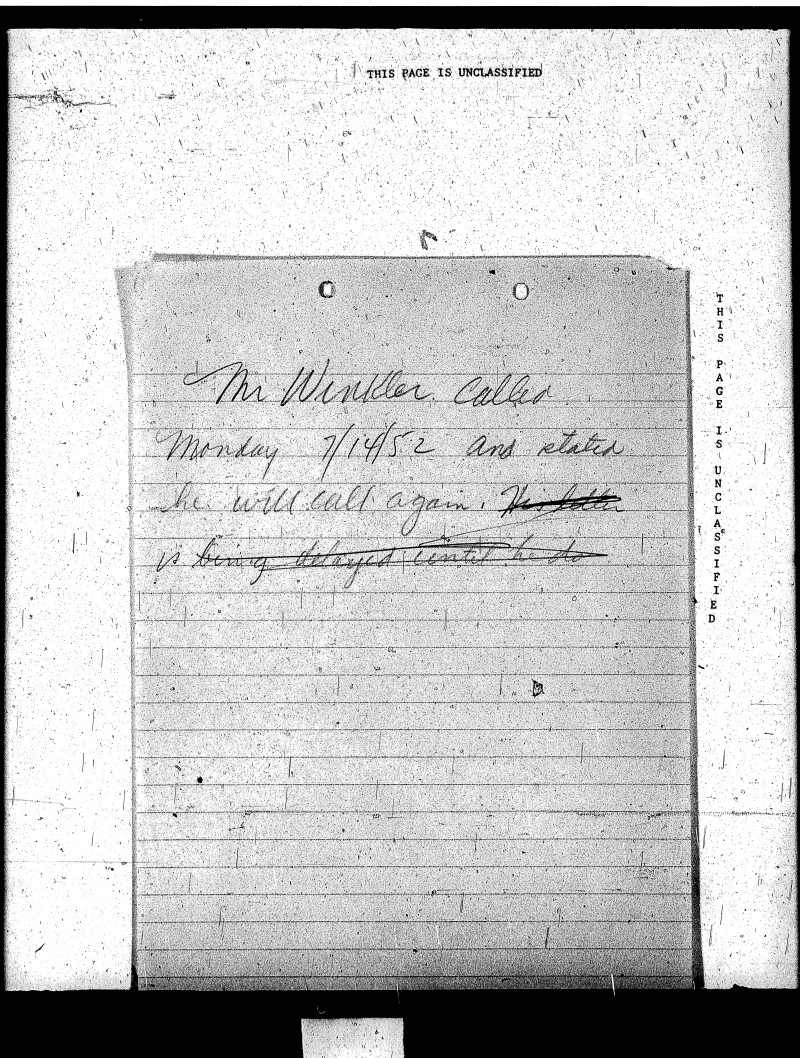 THIS PAGE IS UNCLASSIFIED
Mr Winkler called
Monday 7/14/52 and stated
he will call again. His letter
is being delayed until he do
THIS PAGE IS UNCLASSIFIED